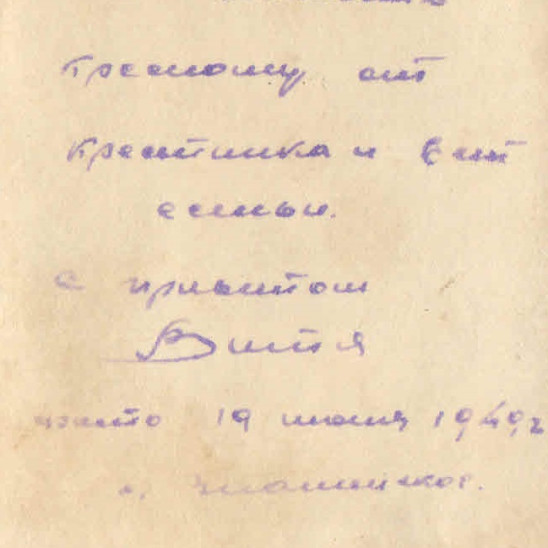 Крестному от
Крестника и его
семьи.
с приветом
Витя
фото 19 июня 1949 г